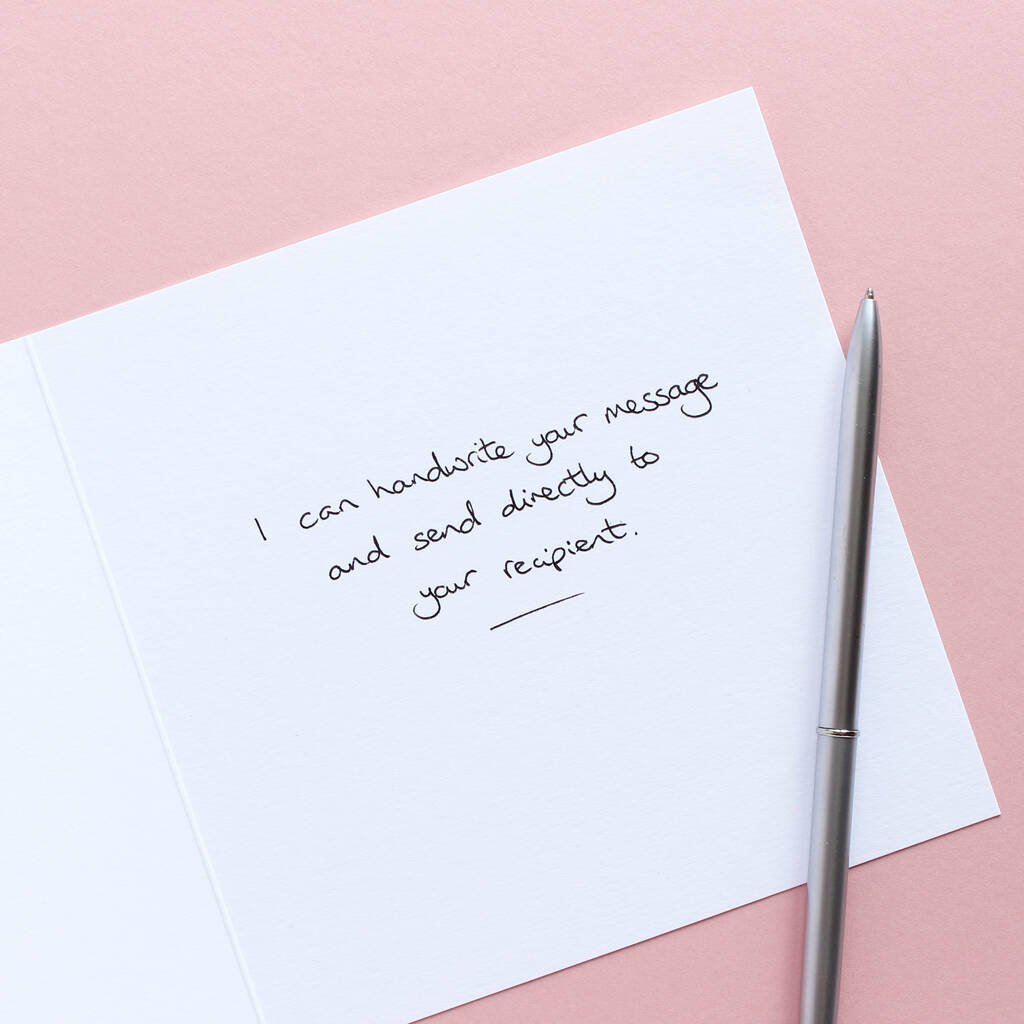 I can handwrite your message
and send directly to
your recipient.